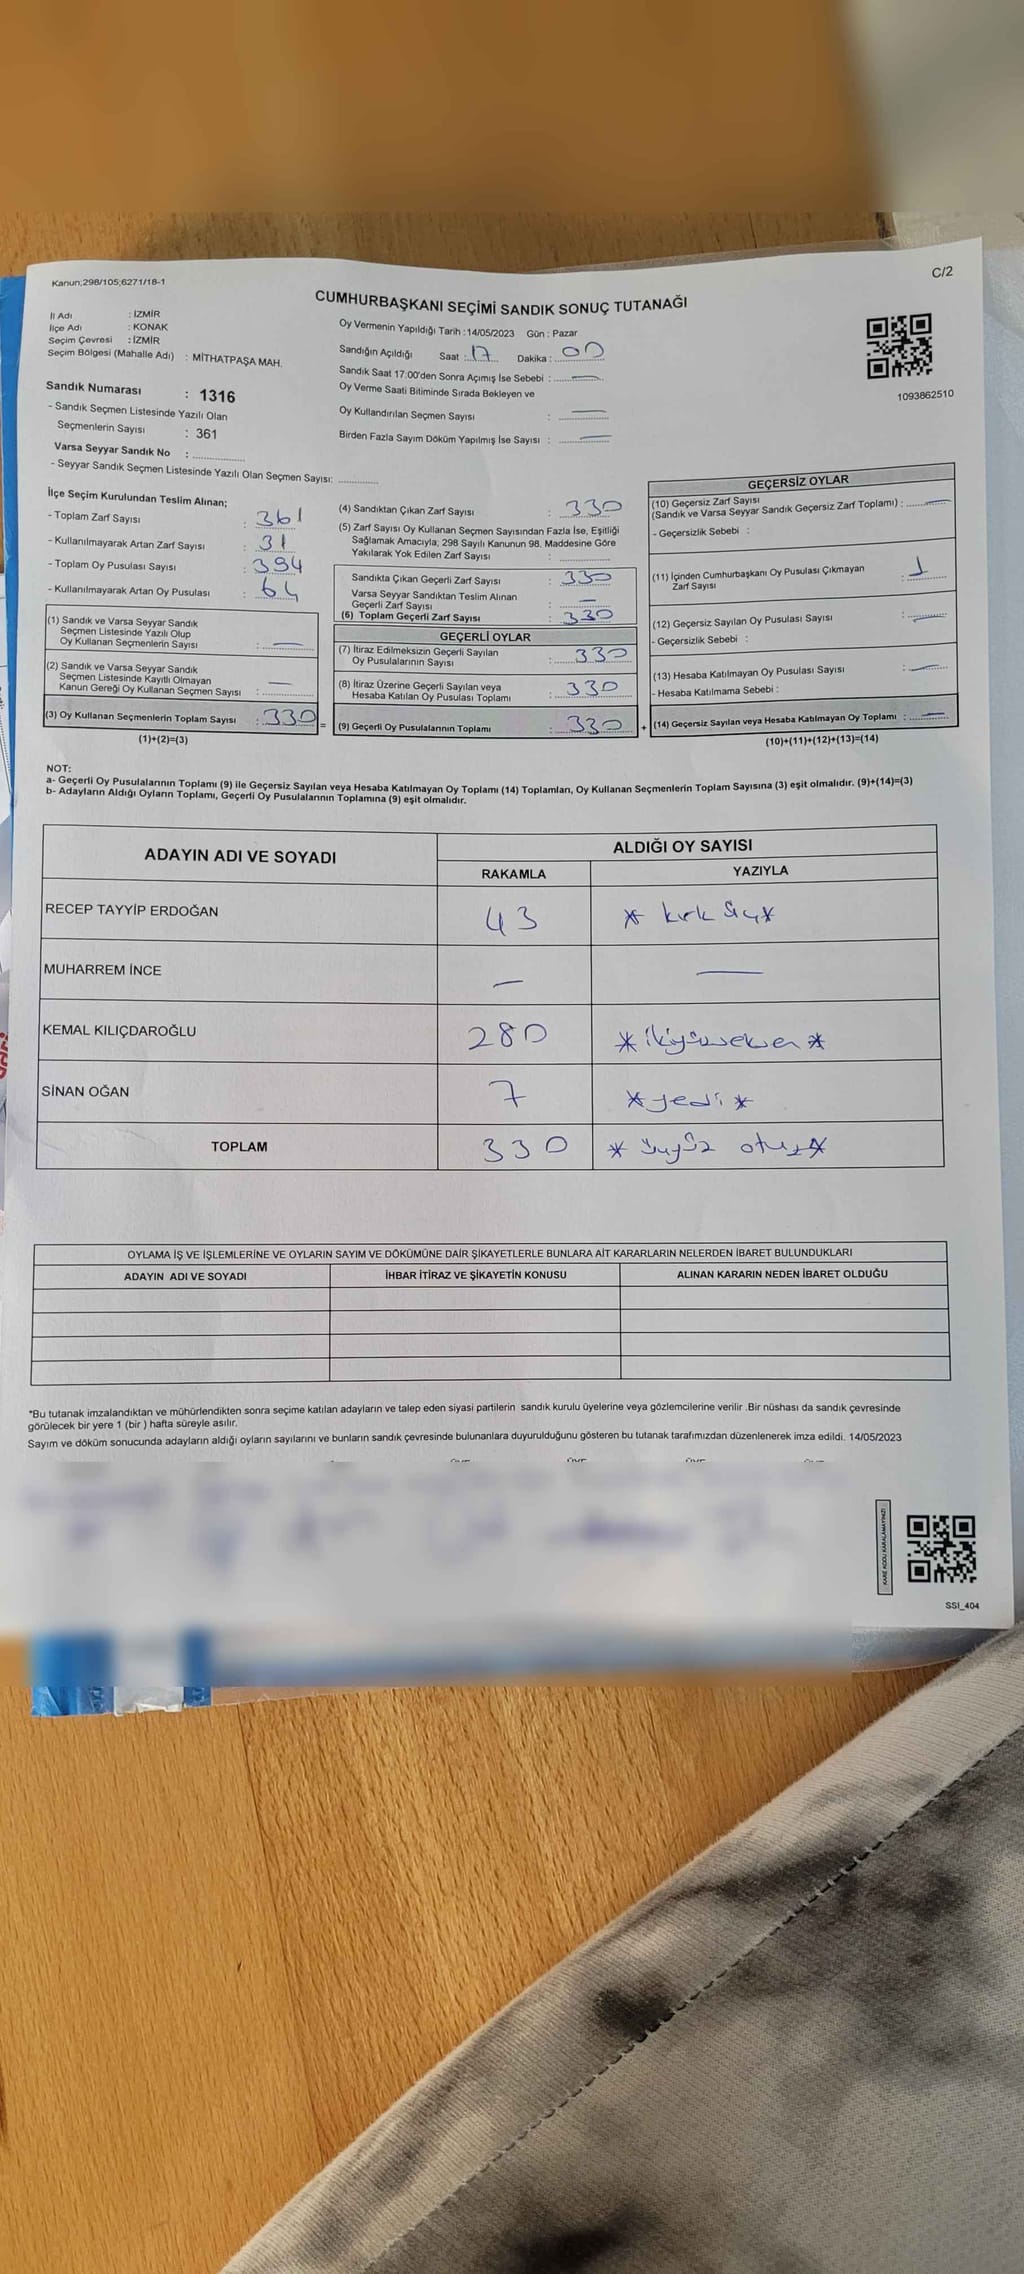 Kanun;298/105;6271/18-1
C/2
CUMHURBAŞKANI SEÇİMİ SANDIK SONUÇ TUTANAĞI
İl Adı : İZMİR
İlçe Adı : KONAK
Seçim Çevresi : İZMİR
Seçim Bölgesi (Mahalle Adı) : MİTHATPAŞA MAH.
Sandık Numarası : 1316
- Sandık Seçmen Listesinde Yazılı Olan
Seçmenlerin Sayısı : 361
Varsa Seyyar Sandık No :
- Seyyar Sandık Seçmen Listesinde Yazılı Olan Seçmen Sayısı:
Oy Vermenin Yapıldığı Tarih :14/05/2023 Gün : Pazar
Sandığın Açıldığı Saat : 17 Dakika : 00
Sandık Saat 17:00'den Sonra Açımış İse Sebebi : —
Oy Verme Saati Bitiminde Sırada Bekleyen ve
Oy Kullandırılan Seçmen Sayısı : —
Birden Fazla Sayım Döküm Yapılmış İse Sayısı : —
1093862510
İlçe Seçim Kurulundan Teslim Alınan;
- Toplam Zarf Sayısı : 361
- Kullanılmayarak Artan Zarf Sayısı : 31
- Toplam Oy Pusulası Sayısı : 394
- Kullanılmayarak Artan Oy Pusulası : 64
(1) Sandık ve Varsa Seyyar Sandık
Seçmen Listesinde Yazılı Olup
Oy Kullanan Seçmenlerin Sayısı : —
(2) Sandık ve Varsa Seyyar Sandık
Seçmen Listesinde Kayıtlı Olmayan
Kanun Gereği Oy Kullanan Seçmen Sayısı : —
(3) Oy Kullanan Seçmenlerin Toplam Sayısı : 330 =
(1)+(2)=(3)
(4) Sandıktan Çıkan Zarf Sayısı : 330
(5) Zarf Sayısı Oy Kullanan Seçmen Sayısından Fazla İse, Eşitliği
Sağlamak Amacıyla, 298 Sayılı Kanunun 98. Maddesine Göre
Yakılarak Yok Edilen Zarf Sayısı :
Sandıkta Çıkan Geçerli Zarf Sayısı : 330
Varsa Seyyar Sandıktan Teslim Alınan
Geçerli Zarf Sayısı : —
(6) Toplam Geçerli Zarf Sayısı : 330
GEÇERLİ OYLAR
(7) İtiraz Edilmeksizin Geçerli Sayılan
Oy Pusulalarının Sayısı : 330
(8) İtiraz Üzerine Geçerli Sayılan veya
Hesaba Katılan Oy Pusulası Toplamı : 330
(9) Geçerli Oy Pusulalarının Toplamı : 330 +
GEÇERSİZ OYLAR
(10) Geçersiz Zarf Sayısı
(Sandık ve Varsa Seyyar Sandık Geçersiz Zarf Toplamı) : —
- Geçersizlik Sebebi :
(11) İçinden Cumhurbaşkanı Oy Pusulası Çıkmayan
Zarf Sayısı : 1
(12) Geçersiz Sayılan Oy Pusulası Sayısı : —
- Geçersizlik Sebebi :
(13) Hesaba Katılmayan Oy Pusulası Sayısı : —
- Hesaba Katılmama Sebebi :
(14) Geçersiz Sayılan veya Hesaba Katılmayan Oy Toplamı : —
(10)+(11)+(12)+(13)=(14)
NOT:
a- Geçerli Oy Pusulalarının Toplamı (9) ile Geçersiz Sayılan veya Hesaba Katılmayan Oy Toplamı (14) Toplamları, Oy Kullanan Seçmenlerin Toplam Sayısına (3) eşit olmalıdır. (9)+(14)=(3)
b- Adayların Aldığı Oyların Toplamı, Geçerli Oy Pusulalarının Toplamına (9) eşit olmalıdır.
ADAYIN ADI VE SOYADI ALDIĞI OY SAYISI
RAKAMLA YAZIYLA
RECEP TAYYİP ERDOĞAN 43 * kırk üç *
MUHARREM İNCE — —
KEMAL KILIÇDAROĞLU 280 * ikiyüzseksen *
SİNAN OĞAN 7 * yedi *
TOPLAM 330 * üçyüz otuz *
OYLAMA İŞ VE İŞLEMLERİNE VE OYLARIN SAYIM VE DÖKÜMÜNE DAİR ŞİKAYETLERLE BUNLARA AİT KARARLARIN NELERDEN İBARET BULUNDUKLARI
ADAYIN ADI VE SOYADI İHBAR İTİRAZ VE ŞİKAYETİN KONUSU ALINAN KARARIN NEDEN İBARET OLDUĞU
*Bu tutanak imzalandıktan ve mühürlendikten sonra seçime katılan adayların ve talep eden siyasi partilerin sandık kurulu üyelerine veya gözlemcilerine verilir .Bir nüshası da sandık çevresinde
görülecek bir yere 1 (bir ) hafta süreyle asılır.
Sayım ve döküm sonucunda adayların aldığı oyların sayılarını ve bunların sandık çevresinde bulunanlara duyurulduğunu gösteren bu tutanak tarafımızdan düzenlenerek imza edildi. 14/05/2023
KARE KODU KARALAMAYINIZ!
SSI_404